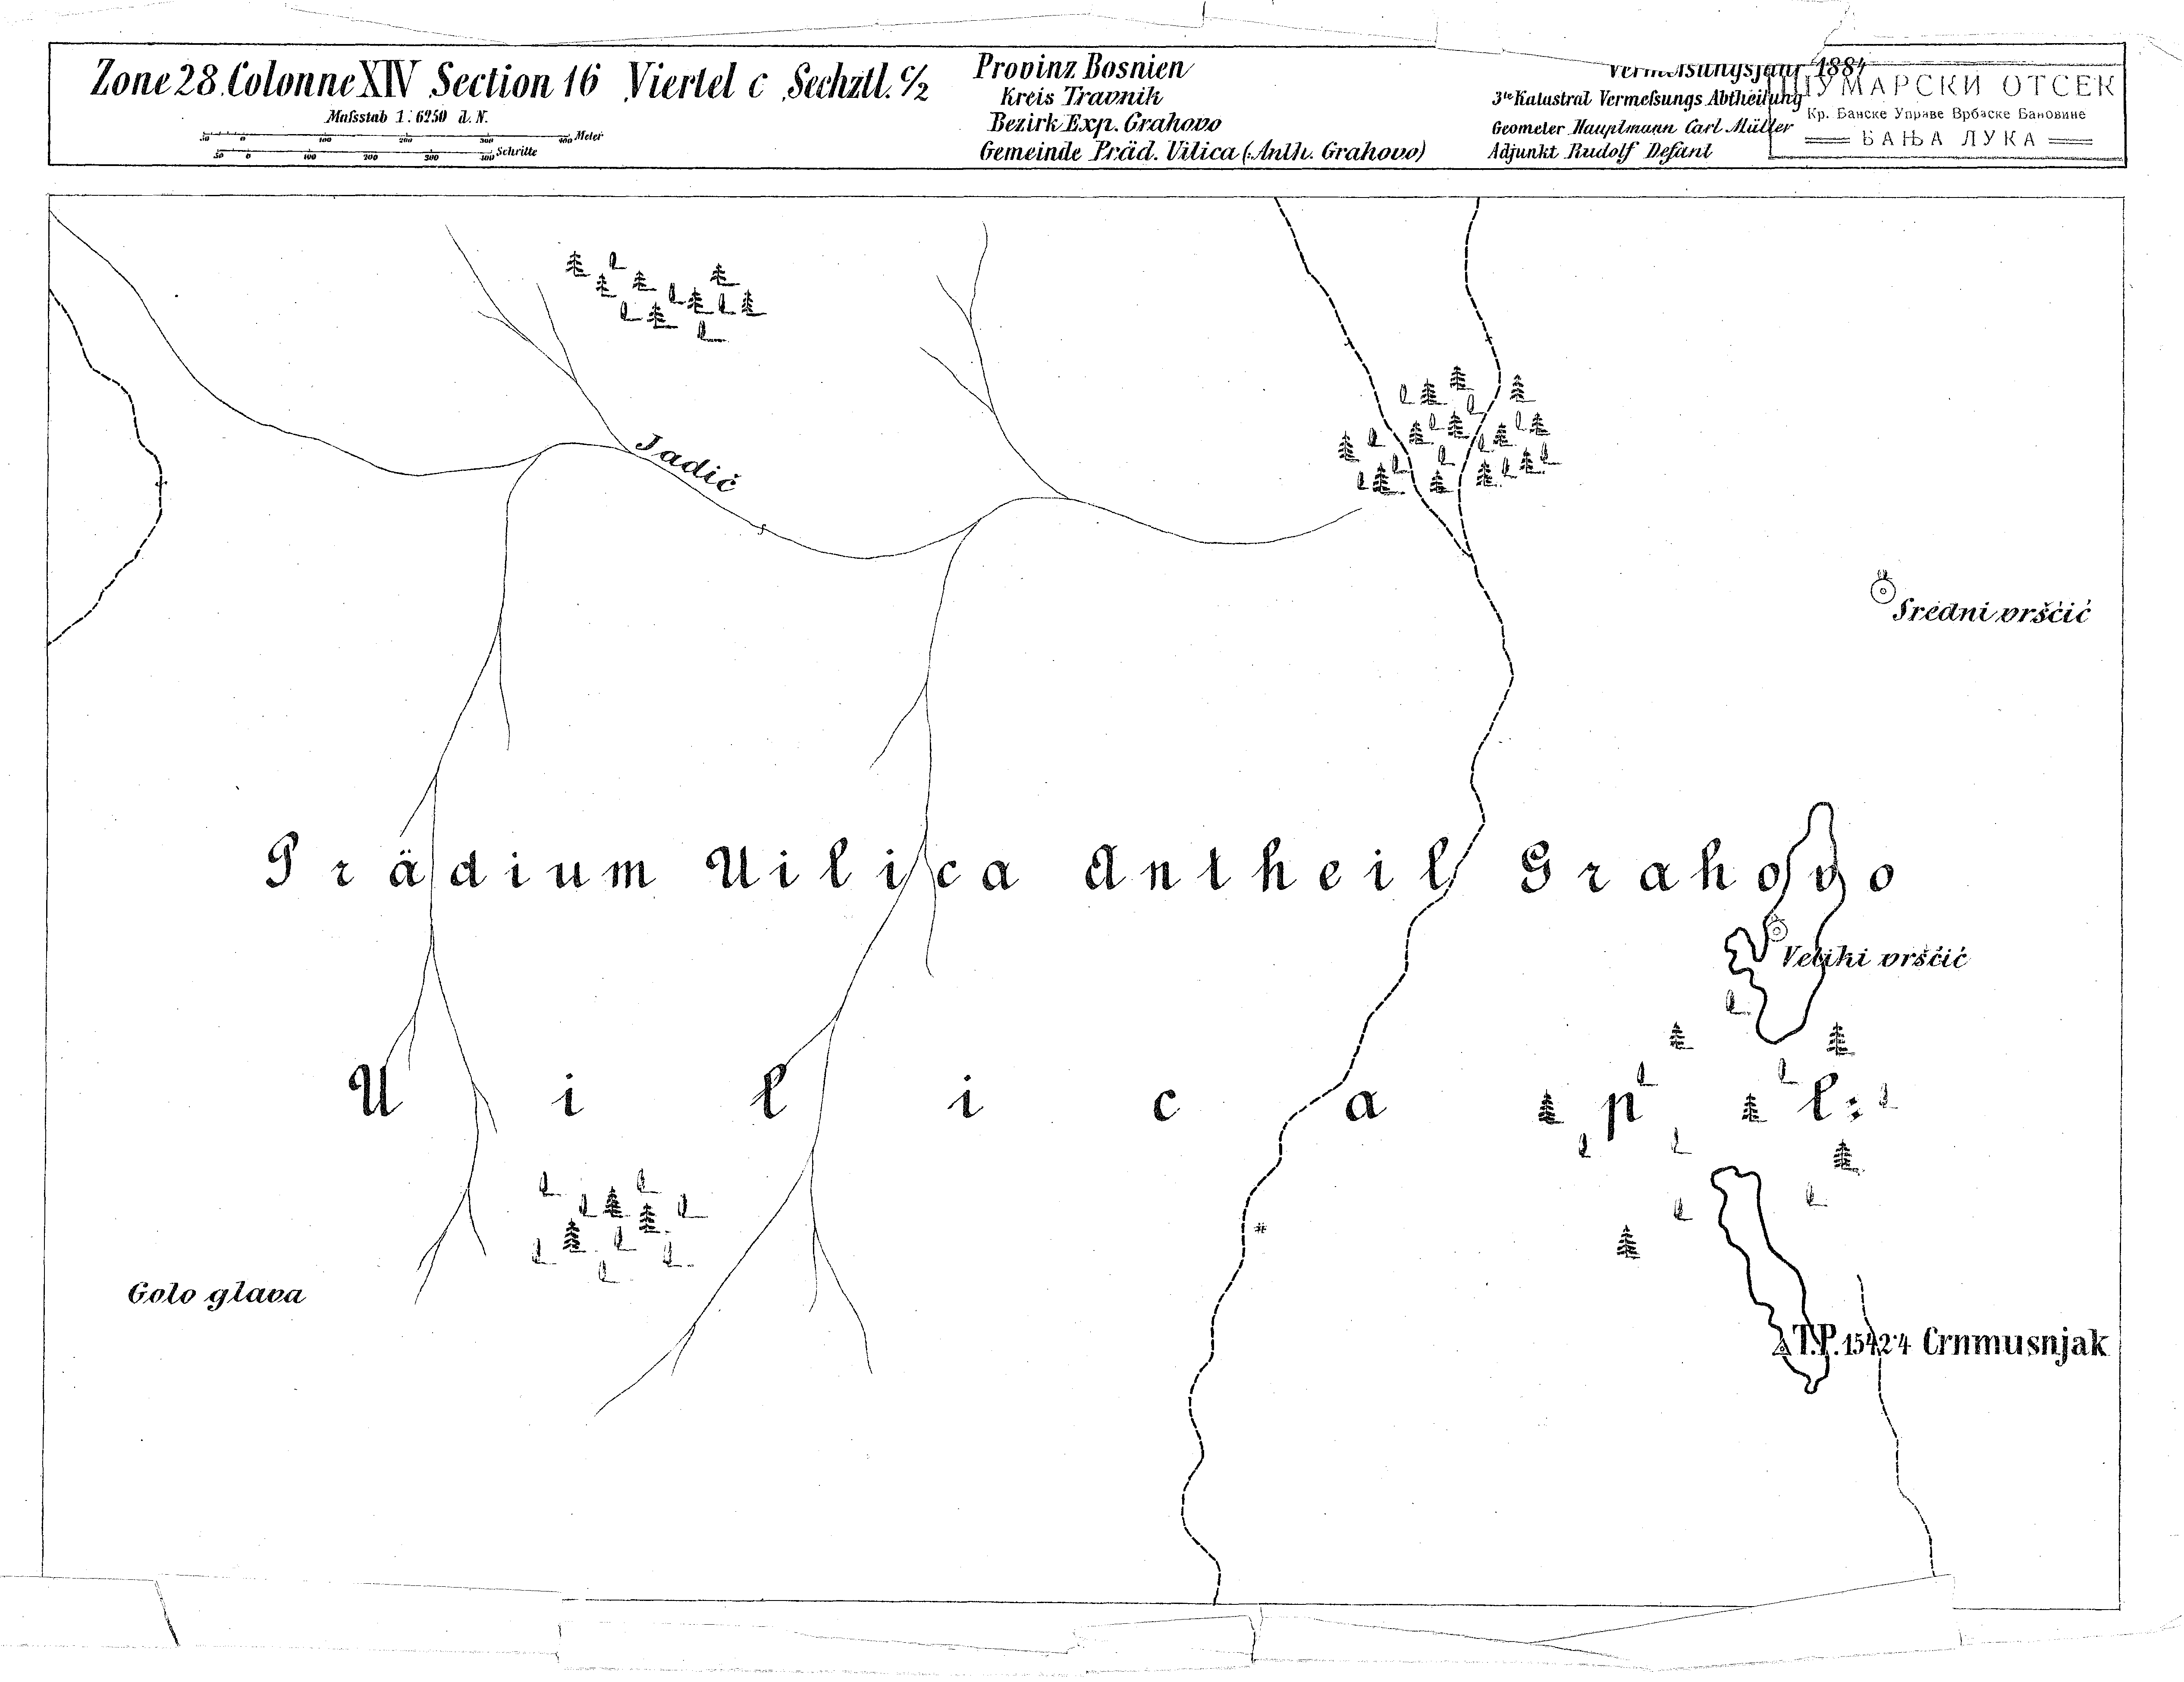 Zone 28 Colonne XIV Section 16 Viertel c Sechztl. c/2
Maſsstab 1:6250 d. N.
50 0 100 200 300 400 Meter
50 0 100 200 300 400 Schritte
Provinz Bosnien
Kreis Travnik
Bezirk Exp. Grahovo
Gemeinde Präd. Uilica (:Anth. Grahovo)
Vermeſsungsjahr 1884
3te Katastral Vermeſsungs Abtheilung
Geometer Hauptmann Carl Müller
Adjunkt Rudolf Defant
ШУМАРСКИ ОТСЕК
Кр. Банске Управе Врбаске Бановине
БАЊА ЛУКА
Jadić
Sredni vrščić
Prädium Uilica Antheil Grahovo
Veliki vrščić
Uilica pl:
Golo glava
T.P. 1542·4 Crnmusnjak